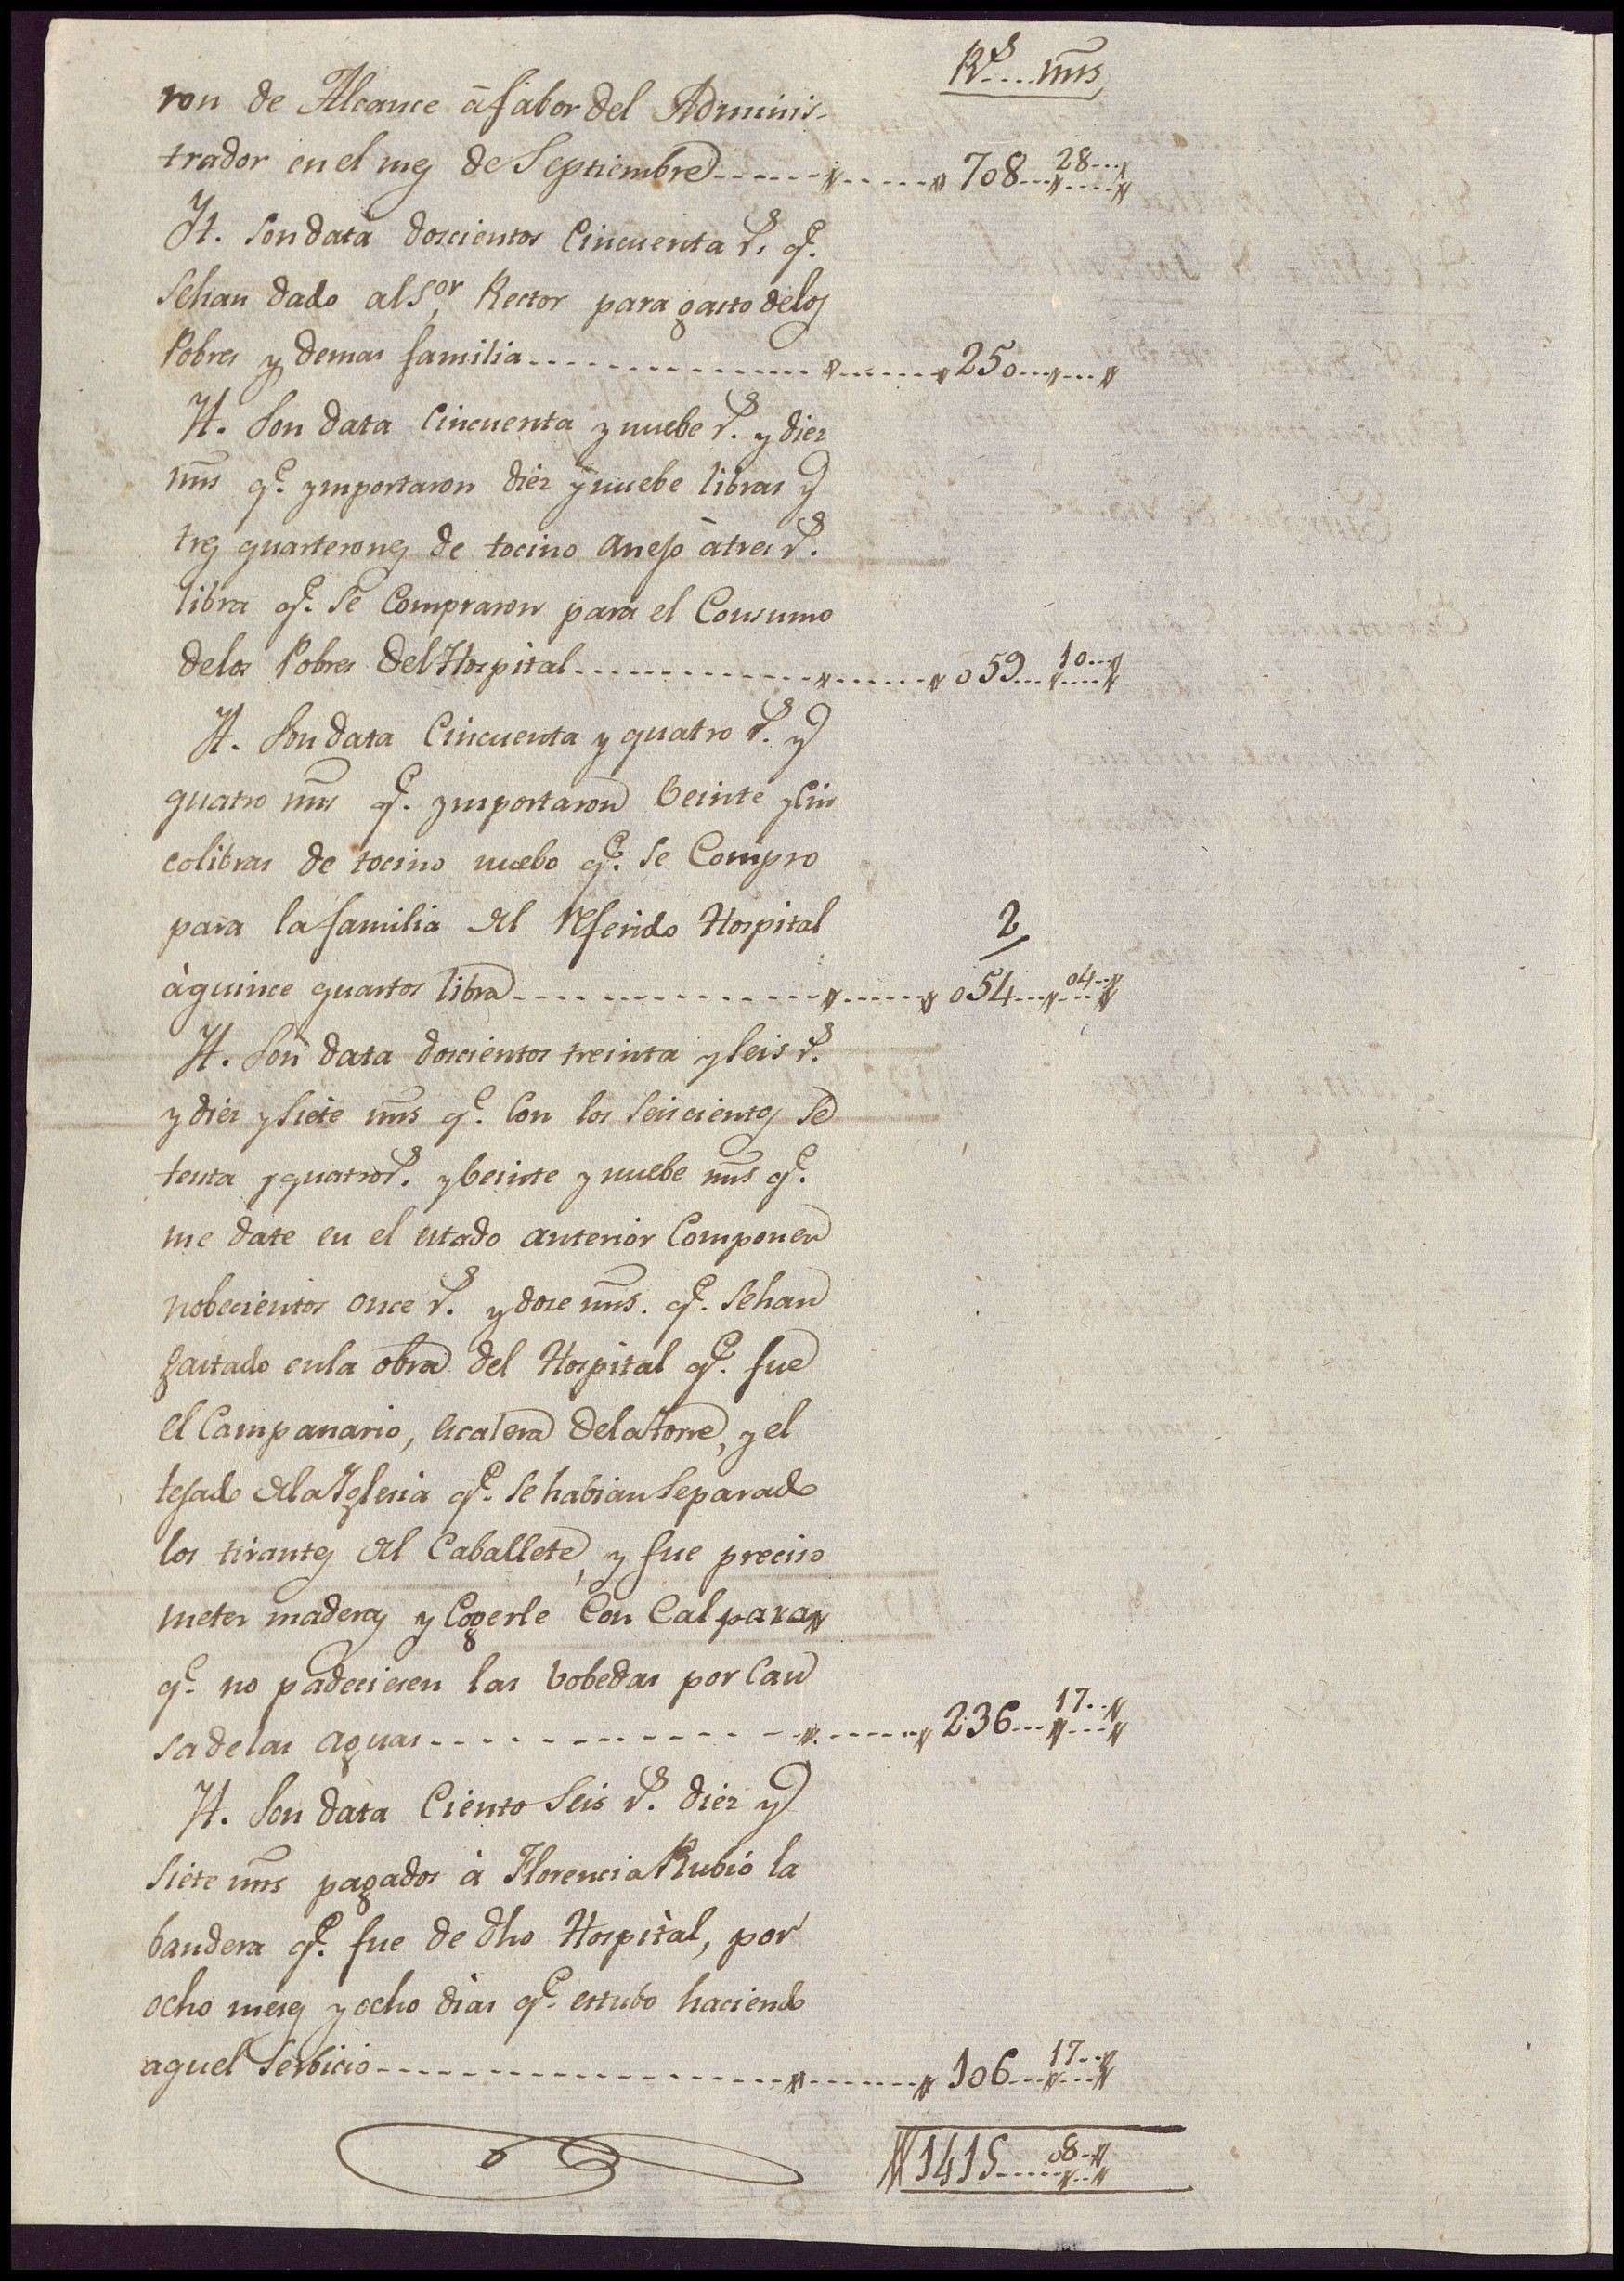 Rˢ....mrs
ron de Alcance à fabor del Adminis-
trador en el mes de Septiembre ........ 708.... 28...
It. son data doscientos cincuenta rˢ. qᵉ.
sehan dado al Sᵒʳ. Rector para gasto delos
Pobres y demas familia ........ 250...
It. Son data cincuenta y nuebe rˢ. y diez
mrs qᵉ. ymportaron diez y nuebe libras y
tres quarterones de tocino anejo à tres rˢ.
libra qᵉ. se compraron para el Consumo
delos Pobres del Hospital ........ 059... 10...
It. Son data Cincuenta y quatro rˢ. y
quatro mrs qᵉ. ymportaron beinte y cin
co libras de tocino nuebo qᵉ. se Compro
para la familia del referido Hospital
2
à quince quartos libra ........ 054... 04...
It. Son data doscientos treinta y seis rˢ.
y diez y siete mrs qᵉ. con los seiscientos se
tenta y quatro rˢ. y beinte y nuebe mrs qᵉ.
me date en el estado anterior Componen
nobecientos once rˢ. y doce mrs. qᵉ. sehan
gastado enla obra del Hospital qᵉ. fue
el Campanario, escalera dela torre, y el
tejado dela Iglesia qᵉ. se habian Separado
los tirantes del Caballete, y fue preciso
meter maderas y Cogerle Con Cal para
qᵉ. no padeciesen las bobedas por Cau
sa de las aguas ........ 236... 17...
It. Son data Ciento Seis rˢ. diez y
siete mrs pagados à Florencia Rubio la
bandera qᵉ. fue de dho Hospital, por
ocho meses y ocho dias qᵉ. estubo haciendo
aquel Serbicio ........ 106... 17...
1415...... 08..